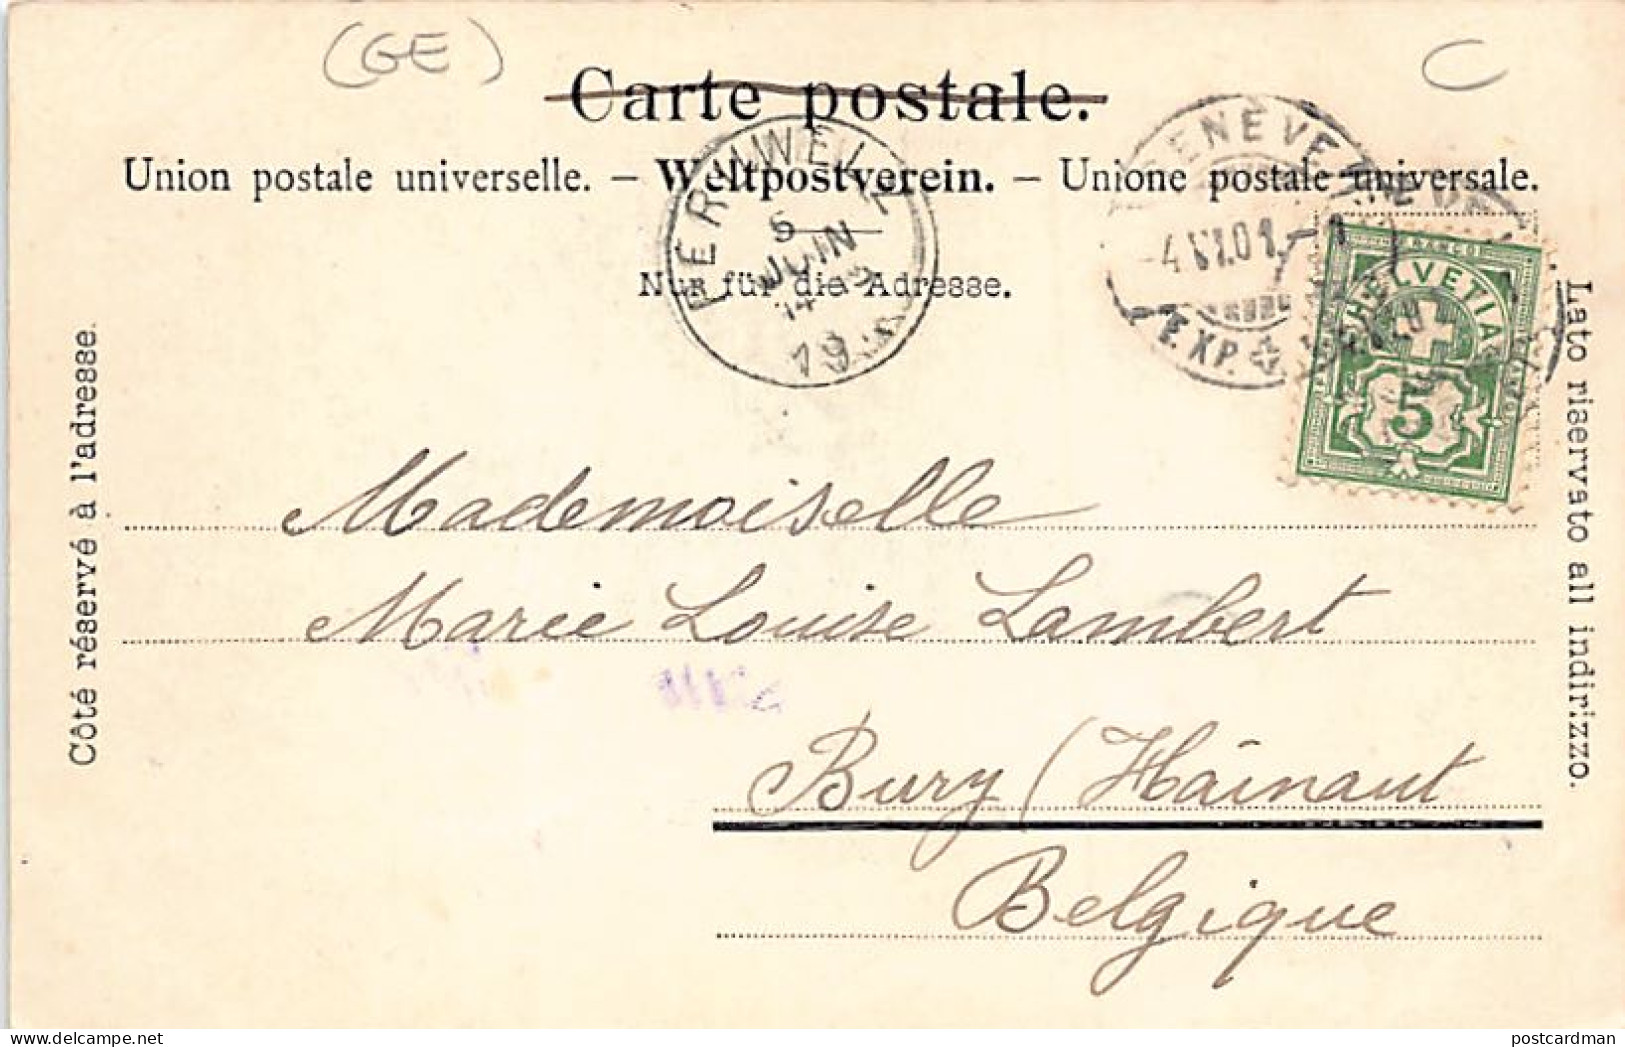 (GE)
C
Carte postale.
Union postale universelle. – Weltpostverein. – Unione postale universale.
Nur für die Adresse.
PÉRUWELZ
5
JUIN
19
GENÈVE
4 VI.01.
EXP.
FRANCO
HELVETIA
5
Côté réservé à l'adresse.
Lato riservato all indirizzo.
Mademoiselle
Marie Louise Lambert
Bury (Hainaut
Belgique
postcardman